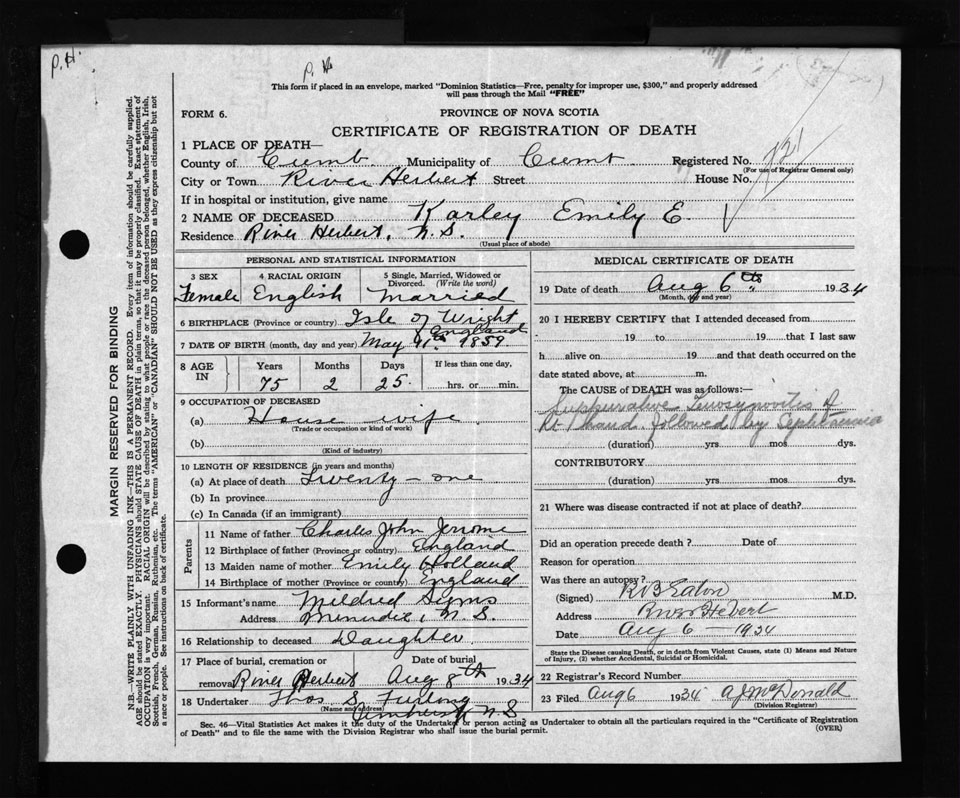 P.H.
P.H.
This form if placed in an envelope, marked "Dominion Statistics—Free, penalty for improper use, $300," and properly addressed
will pass through the Mail "FREE"
FORM 6.
PROVINCE OF NOVA SCOTIA
CERTIFICATE OF REGISTRATION OF DEATH
1 PLACE OF DEATH—
County of Cumb. Municipality of Cumb Registered No. 721
(For use of Registrar General only)
City or Town River Herbert Street House No.
If in hospital or institution, give name
2 NAME OF DECEASED Karley Emily E.
Residence River Herbert, N.S.
(Usual place of abode)
MARGIN RESERVED FOR BINDING
N.B.—WRITE PLAINLY, WITH UNFADING INK—THIS IS A PERMANENT RECORD. Every item of information should be carefully supplied.
AGE should be stated EXACTLY. PHYSICIANS should STATE CAUSE OF DEATH in plain terms, so that it may be properly classified. Exact statement of
OCCUPATION is very important. RACIAL ORIGIN will be described by stating to what people or race the deceased person belonged, whether English, Irish,
Scottish, French, German, Russian, Ruthenian, etc. The terms "AMERICAN" or "CANADIAN" SHOULD NOT BE USED as they express citizenship but not
a race or people. See instructions on back of certificate.
PERSONAL AND STATISTICAL INFORMATION
3 SEX
Female
4 RACIAL ORIGIN
English
5 Single, Married, Widowed or
Divorced. (Write the word)
Married
6 BIRTHPLACE (Province or country) Isle of Wright
England
7 DATE OF BIRTH (month, day and year) May 11th 1859
8 AGE
IN
Years
75
Months
2
Days
25
If less than one day,
hrs. or min.
9 OCCUPATION OF DECEASED
(a) House wife
(Trade or occupation or kind of work)
(b)
(Kind of industry)
10 LENGTH OF RESIDENCE (in years and months)
(a) At place of death Twenty-one
(b) In province
(c) In Canada (if an immigrant)
Parents
11 Name of father Charles John Jerome
12 Birthplace of father (Province or country) England
13 Maiden name of mother Emily Holland
14 Birthplace of mother (Province or country) England
15 Informant's name Mildred Syms
Address Minudie, N.S.
16 Relationship to deceased Daughter
17 Place of burial, cremation or
removal River Herbert
Date of burial
Aug 8th 1934
18 Undertaker Thos S. Furlong
(Name and address)
Amherst N.S
MEDICAL CERTIFICATE OF DEATH
19 Date of death Aug 6th 1934
(Month, day and year)
20 I HEREBY CERTIFY that I attended deceased from
19 to 19 that I last saw
h alive on 19 and that death occurred on the
date stated above, at m.
The CAUSE of DEATH was as follows:—
Suppurative Tinosynovitis of
Rt hand followed by Septicaemia
(duration) yrs mos dys.
CONTRIBUTORY
(duration) yrs. mos dys.
21 Where was disease contracted if not at place of death?
Did an operation precede death? Date of
Reason for operation
Was there an autopsy?
(Signed) R B Eaton M.D.
Address River Hebert
Date Aug 6 - 1934
State the Disease causing Death, or in death from Violent Causes, state (1) Means and Nature
of Injury, (2) whether Accidental, Suicidal or Homicidal.
22 Registrars Record Number
23 Filed Aug 6 1934 A J McDonald
(Division Registrar)
Sec. 46—Vital Statistics Act makes it the duty of the Undertaker or person acting as Undertaker to obtain all the particulars required in the "Certificate of Registration
of Death" and to file the same with the Division Registrar who shall issue the burial permit.
(OVER)